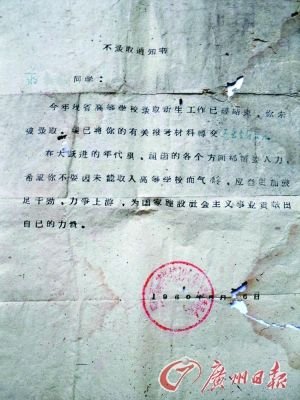 不录取通知书
同学：
今年我省高等学校录取新生工作已经结束，你未
被录取，现已将你的有关报考材料转交
在大跃进的年代里，祖国的各个方面都需要人力，
希望你不要因未能取入高等学校而气馁，应当更加鼓
足干劲，力争上游，为国家建设社会主义事业贡献出
自己的力量。
1960年 月 6日
广州日报